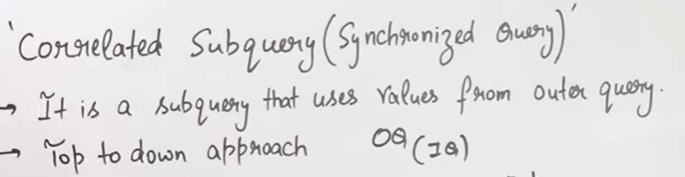 'Correlated Subquery (Synchronized Query)'
→ It is a subquery that uses values from outer query.
→ Top to down approach OQ (IQ)